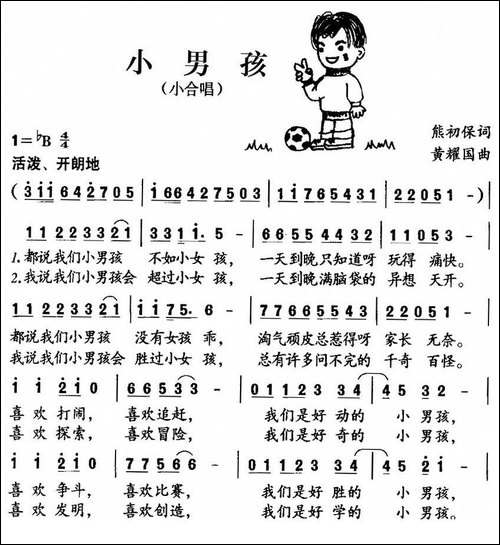 小男孩
(小合唱)
1=♭B 4/4
熊初保词
活泼、开朗地
黄耀国曲
(3̇i̇i̇642705 | i̇66427503 | 1i̇765431 | 22051 -) |
11223321 | 33i̇1̇.5 - | 66554432 | 11053 - |
1.都说我们小男孩 不如小女 孩, 一天到晚只知道呀 玩得 痛快。
2.我说我们小男孩会 超过小女 孩, 一天到晚满脑袋的 异想 天开。
11223321 | i̇i̇75.6 - | 77665543 | 22051 - |
都说我们小男孩 没有女孩 乖, 淘气顽皮总惹得呀 家长 无奈。
我说我们小男孩会 胜过小女 孩, 总有许多问不完的 千奇 百怪。
i̇ i̇ 2̇i̇0 | 66533 - | 01123 34 | 45 32 - |
喜 欢 打闹, 喜欢追赶, 我们是好 动的 小 男孩,
喜 欢 探索, 喜欢冒险, 我们是好 奇的 小 男孩,
i̇ i̇ 2̇i̇0 | 77566 - | 01123 34 | 45 2̇i̇ - |
喜 欢 争斗, 喜欢比赛, 我们是好 胜的 小 男孩,
喜 欢 发明, 喜欢创造, 我们是好 学的 小 男孩。